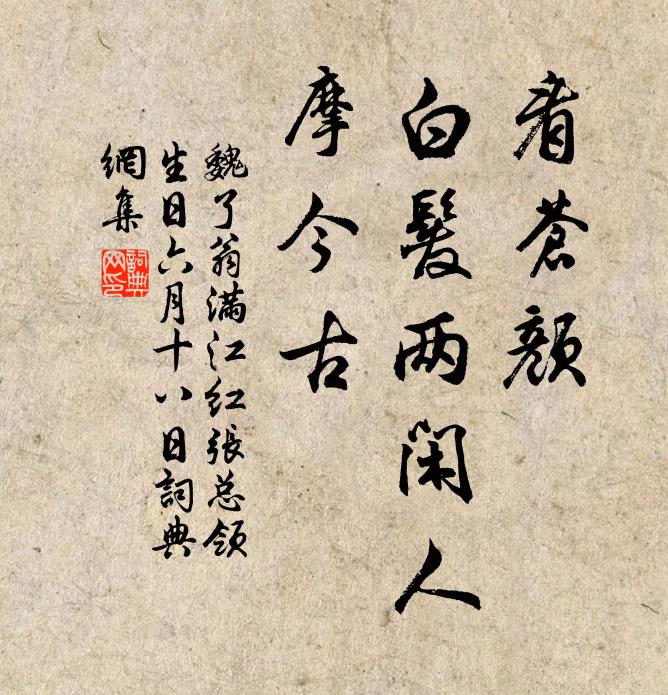 看苍颜
白髮两闲人
摩今古
魏了翁满江红張总领
生日六月十八日詞典
網集
詞典
网印